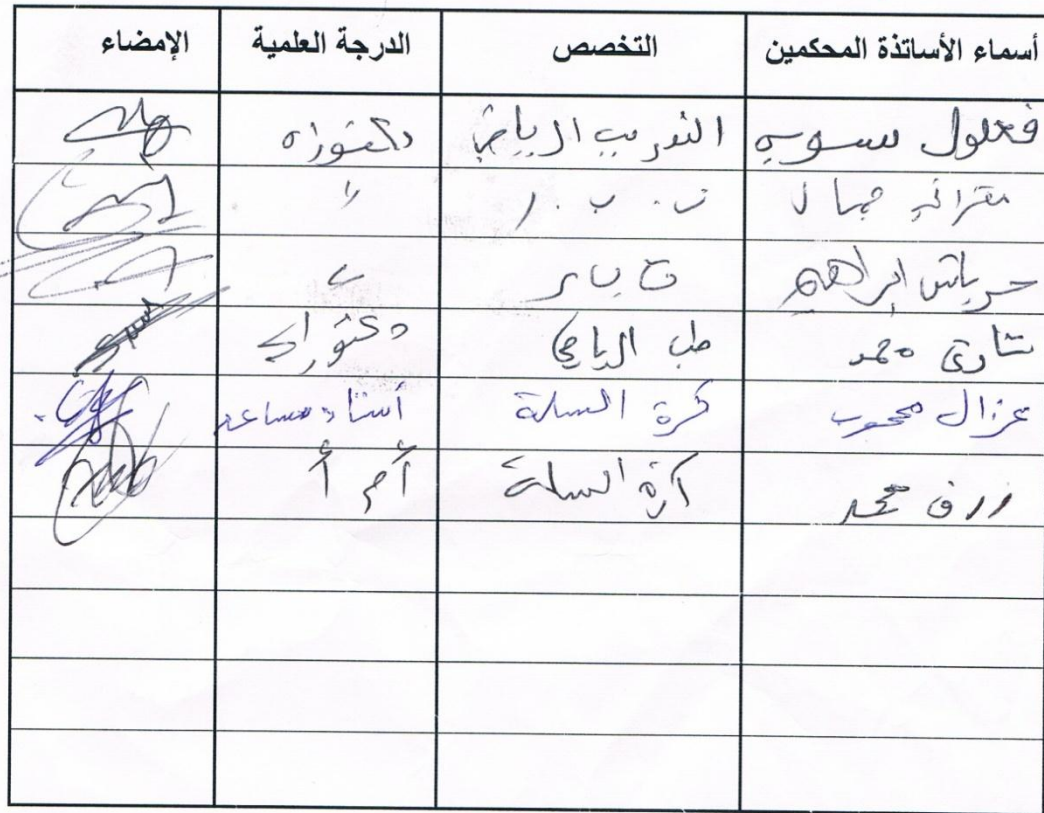 أسماء الأساتذة المحكمين التخصص الدرجة العلمية الإمضاء
التدريب الرياضي دكتوراه
مقراني جمال ت. ب. ر "
حرباش ابراهيم ت ب ر "
محمد طب الرياضي دكتوراه
غزال محجوب كرة السلة أستاذ مساعد
محمد كرة السلة أ م أ